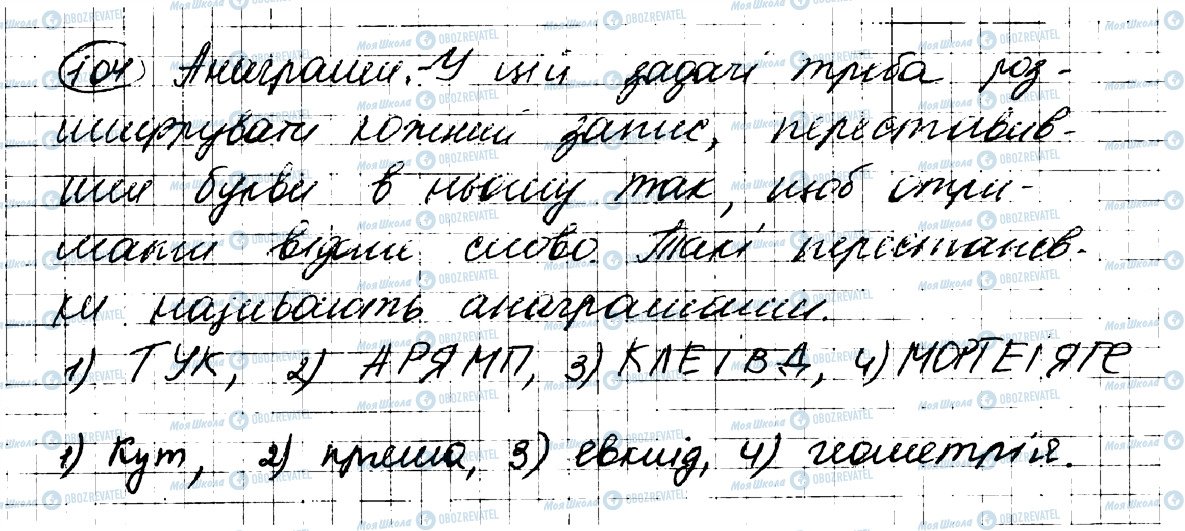 104 Анаграми. У цій задачі треба роз-
шифрувати кожний запис, переставив-
ши букви в ньому так, щоб отри-
мати відоме слово. Такі перестанов-
ки називають анаграмами.
1) ТУК, 2) АРЯМП, 3) КЛЕІВД, 4) МОРТЕІЯГЕ
1) Кут, 2) пряма, 3) евклід, 4) геометрія.